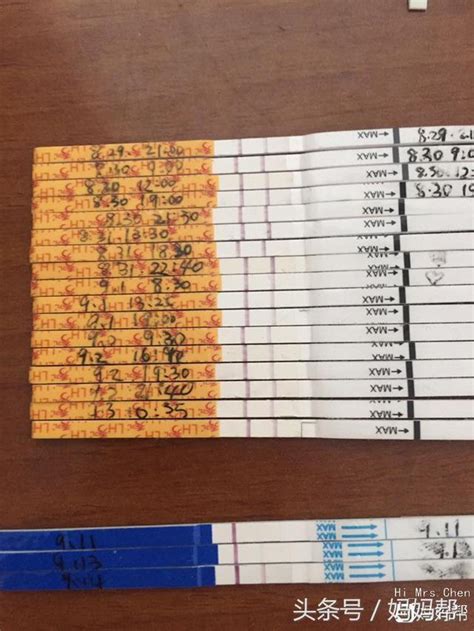 LH 8.29 21:00 MAX 8.29
LH 8.30 9:00 MAX 8.30 9:00
LH 8.30 12:00 MAX 8.30 12
LH 8.30 19:00 MAX 8.30 19
LH 8.30 21:30 MAX
LH 8.31 13:30 MAX
LH 8.31 18:30 MAX
LH 8.31 22:40 MAX
LH 9.1 8:30 MAX
LH 9.1 13:25 MAX
LH 9.1 18:00 MAX
LH 9.2 9:30 MAX
LH 9.2 16:40 MAX
LH 9.2 19:30 MAX
LH 21:40 MAX
LH 0:35 MAX
LH MAX
9.11 MAX 9.11
9.13 MAX 9.13
9.14 MAX
Hi Mrs.Chen
头条号／妈妈帮